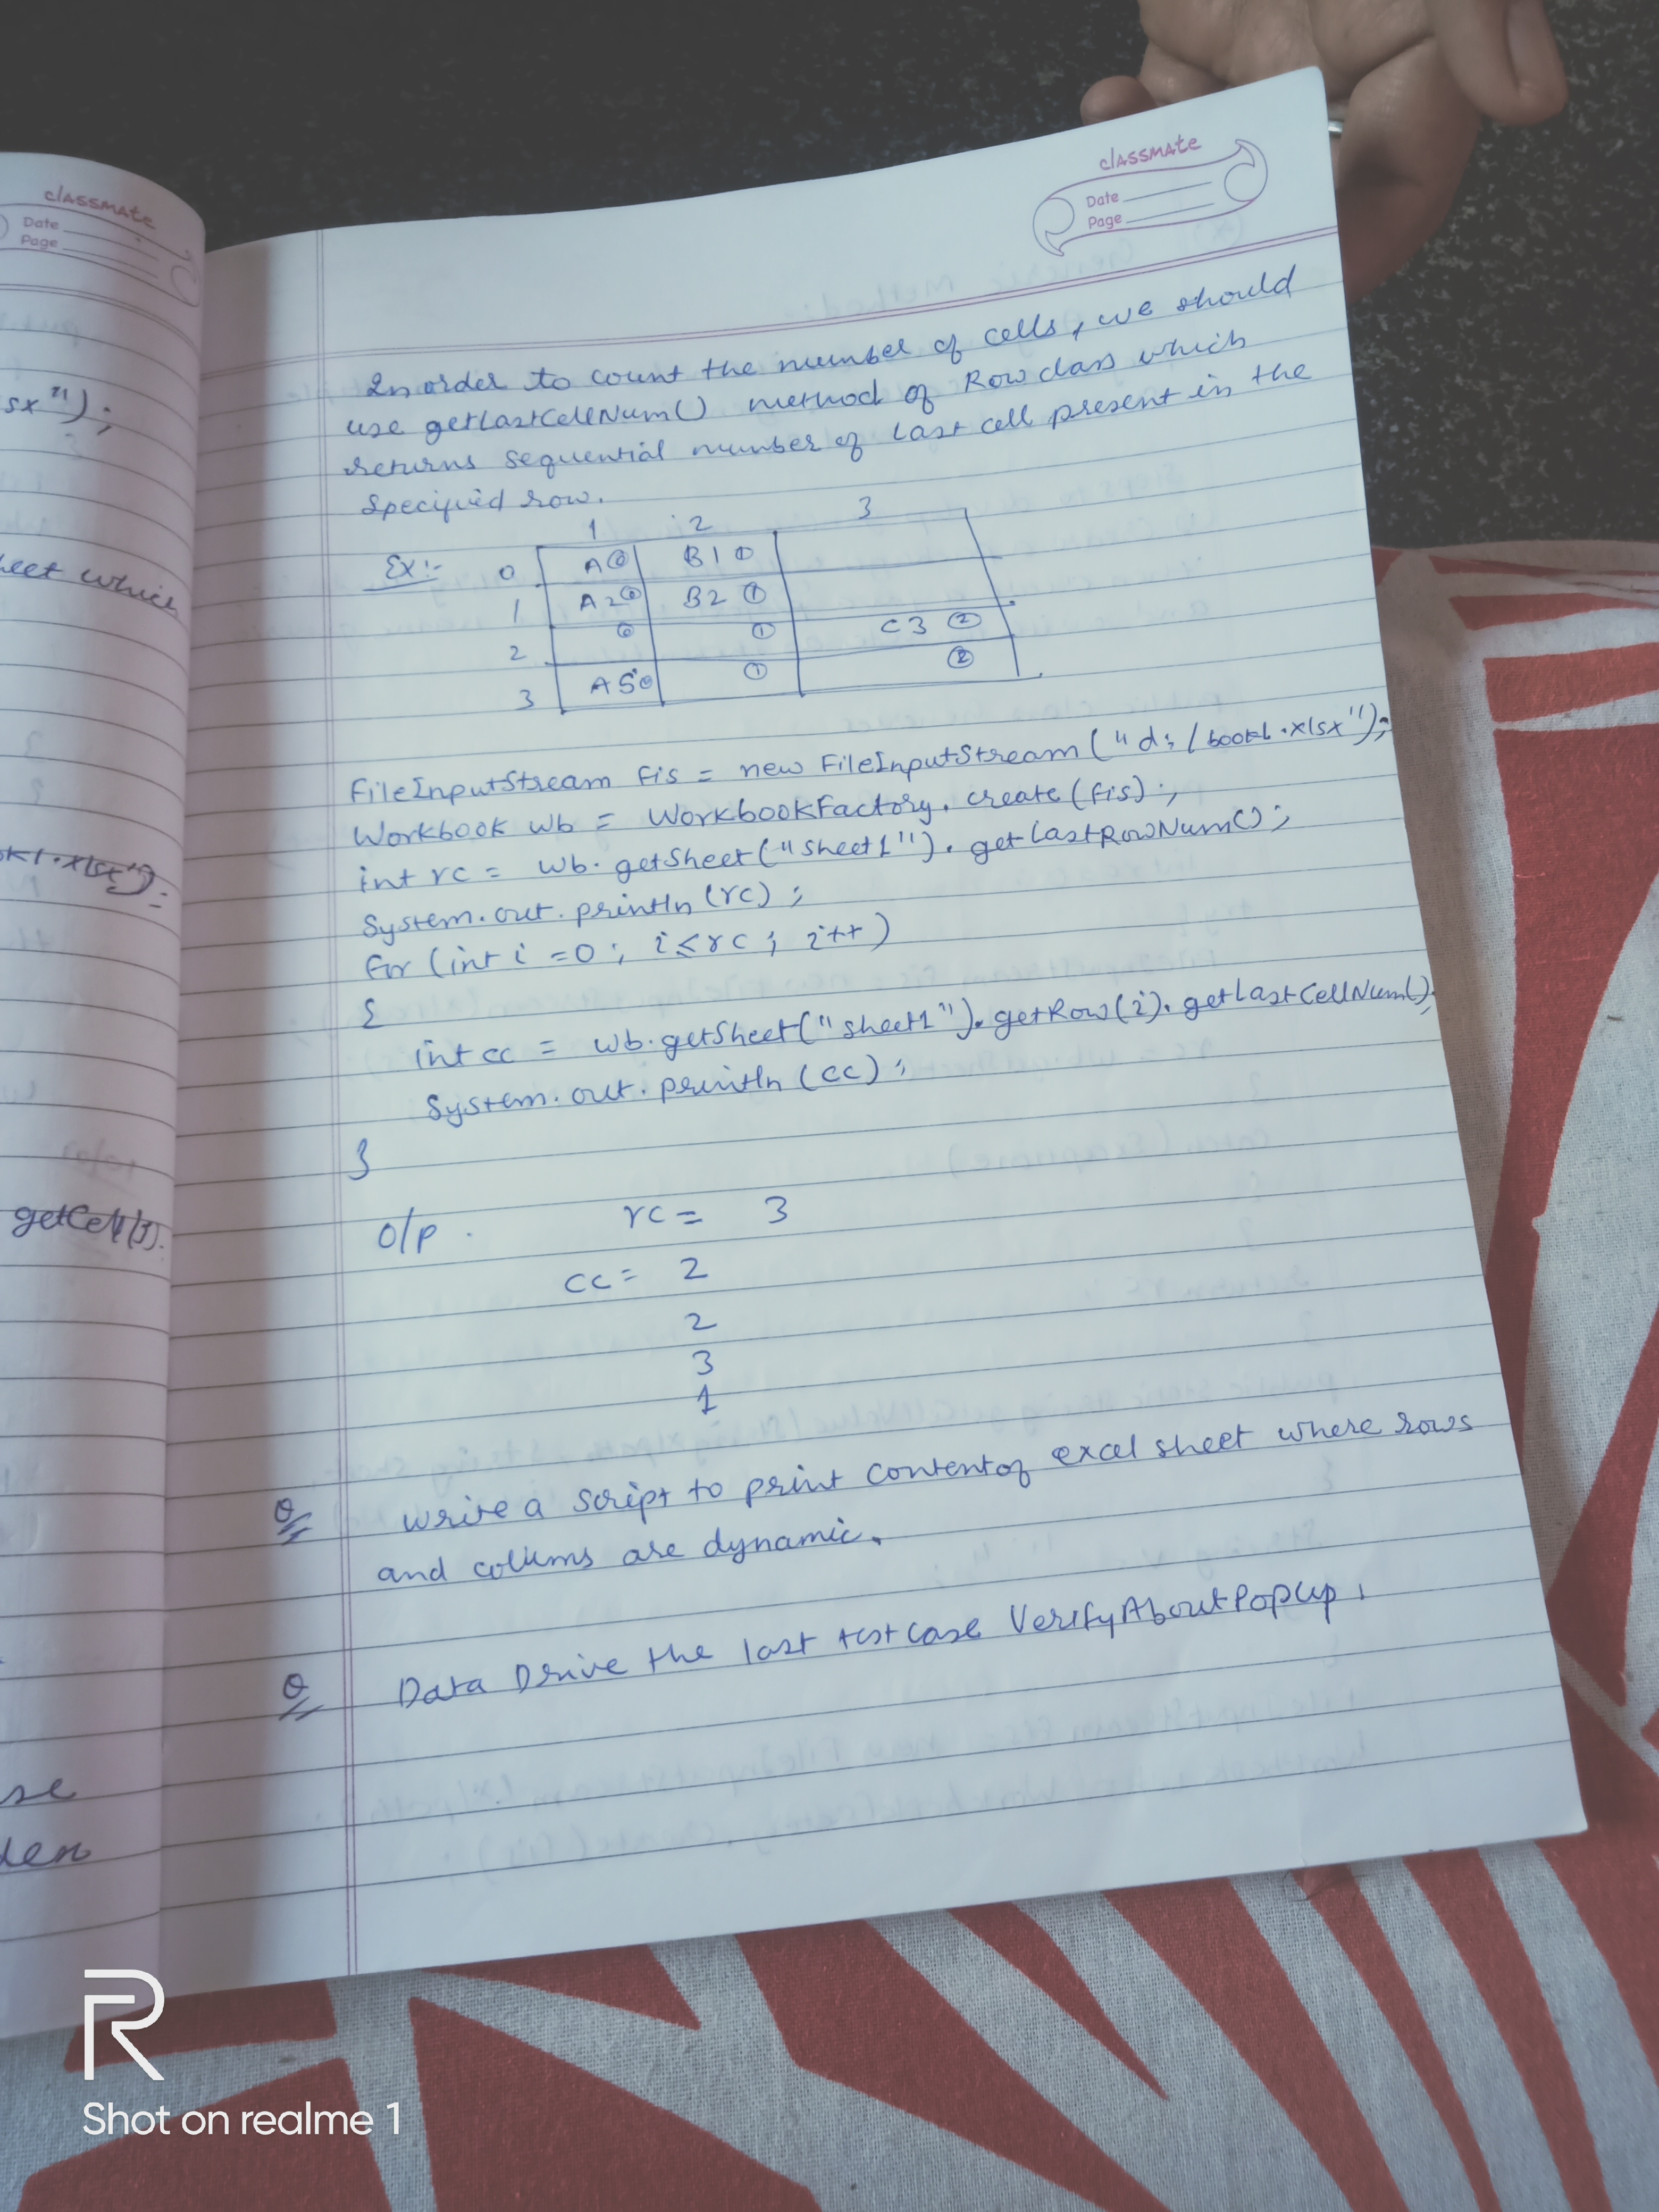 classmate
Date
Page
sx");
heet which
ok1.xlsx");
getCell(1).
se
den
classmate
Date
Page
In order to count the number of cells, we should
use getLastCellNum() method of Row class which
returns sequential number of last cell present in the
specified row.
1 2 3
Ex:- 0 A 0 B1 1
1 A2 0 B2 1
2 0 1 C3 2
3 A5 0 1 2
FileInputStream fis = new FileInputStream("d:/book1.xlsx");
Workbook wb = WorkbookFactory.create(fis);
int rc = wb.getSheet("sheet1").getLastRowNum();
System.out.println(rc);
for (int i =0; i≤rc; i++)
{
int cc = wb.getSheet("sheet1").getRow(i).getLastCellNum();
System.out.println(cc);
}
o/p. rc = 3
cc = 2
2
3
1
Q Write a script to print content of excel sheet where rows
and collums are dynamic.
Q Data Drive the last testcase VerifyAboutPopUp.
R
Shot on realme 1